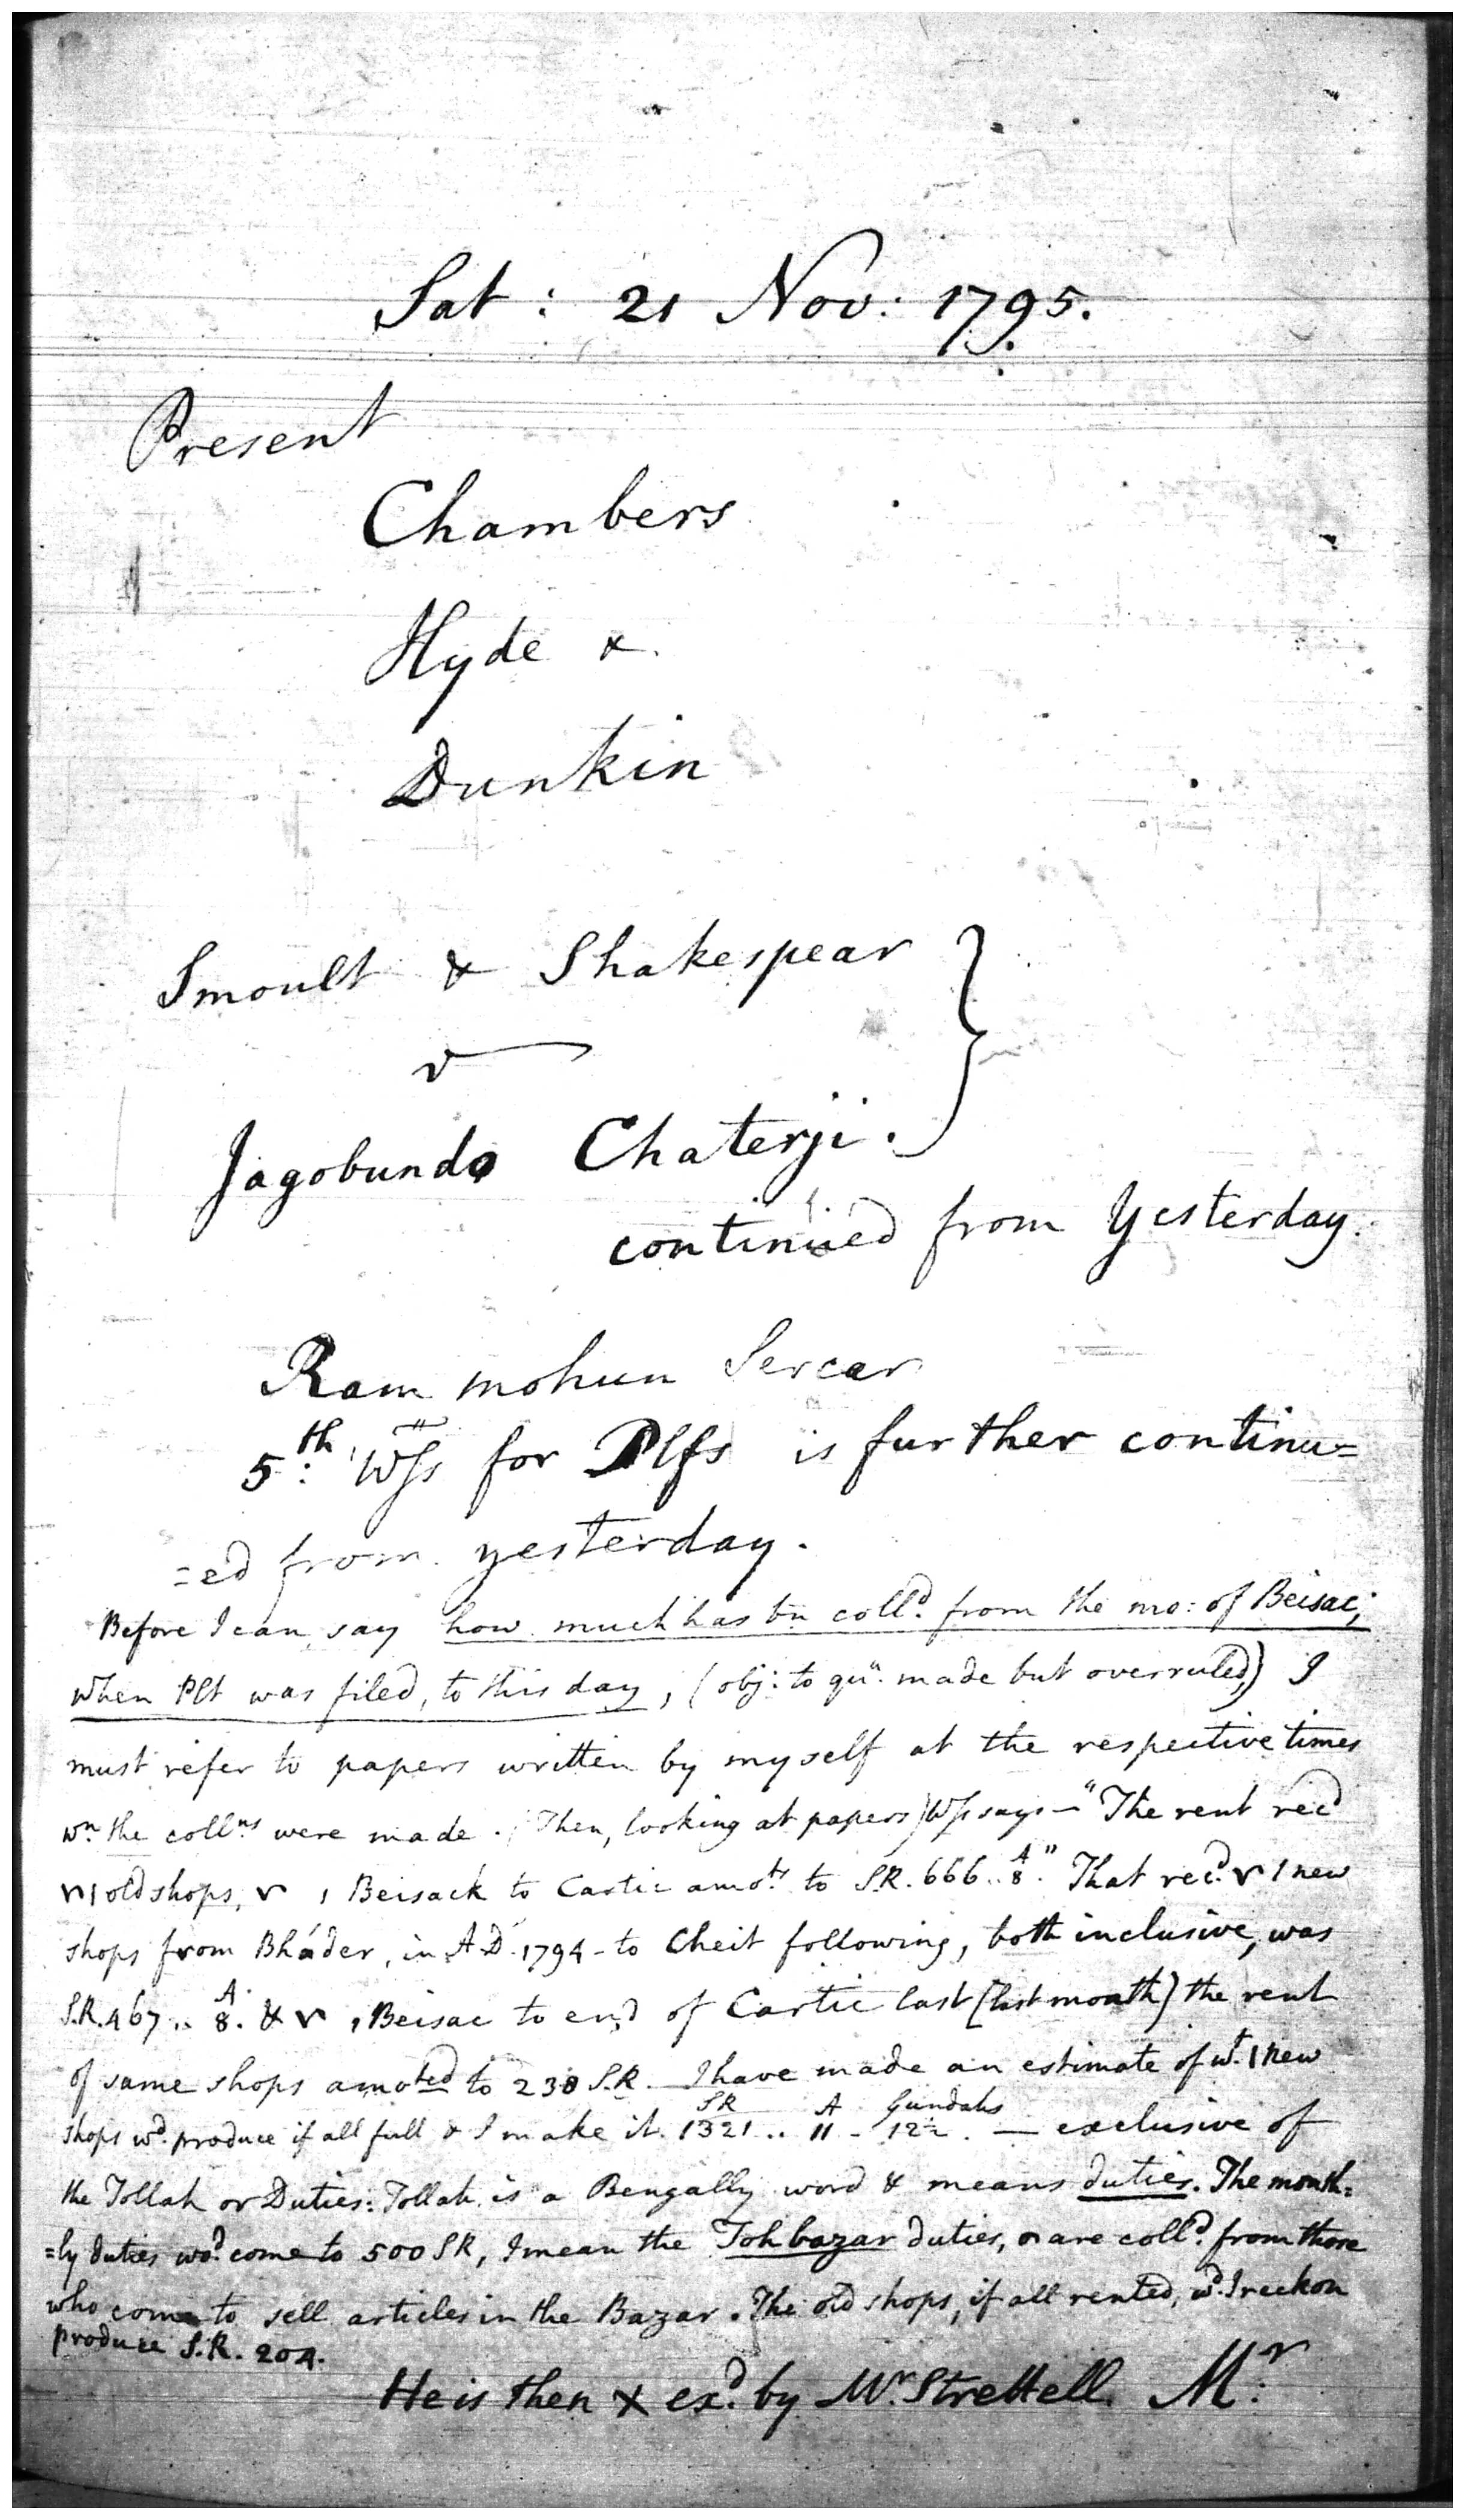 Sat: 21 Nov: 1795.
Present
Chambers
Hyde &
Dunkin
Smoult & Shakespear
v
Jagobundo Chaterji.
continued from Yesterday.
Ram mohun Sercar
5th: Wss for Plfs is further continu=
=ed from yesterday.
Before I can say how much has bn colld. from the mo: of Beisac,
when Plt was filed, to this day, (obj: to qun. made but overruled,) I
must refer to papers written by myself at the respective times
wn. the collns were made. (Then, looking at papers) Wss says — "The rent recd
old shops, Beisack to Cartic amots. to S.R. 666.. A 8." That recd. new
shops from Bháder, in A.D. 1794 - to Cheit following, both inclusive, was
S.R. 467.. A. 8. & Beisac to end of Cartic last (last month) the rent
of same shops amoted to 230 S.R. — I have made an estimate of wt. new
shops wd. produce if all full & I make it SR 1321.. A 11 - Gundahs 12½. — exclusive of
the Tollah or Duties: Tollah is a Bengally word & means duties. The month=
=ly duties wod. come to 500 SR, I mean the Tohbazar duties, are colld. from those
who come to sell articles in the Bazar. The old shops, if all rented, wd. I reckon
produce S.R. 204.
He is then X exd. by Mr. Strettell. Mr: